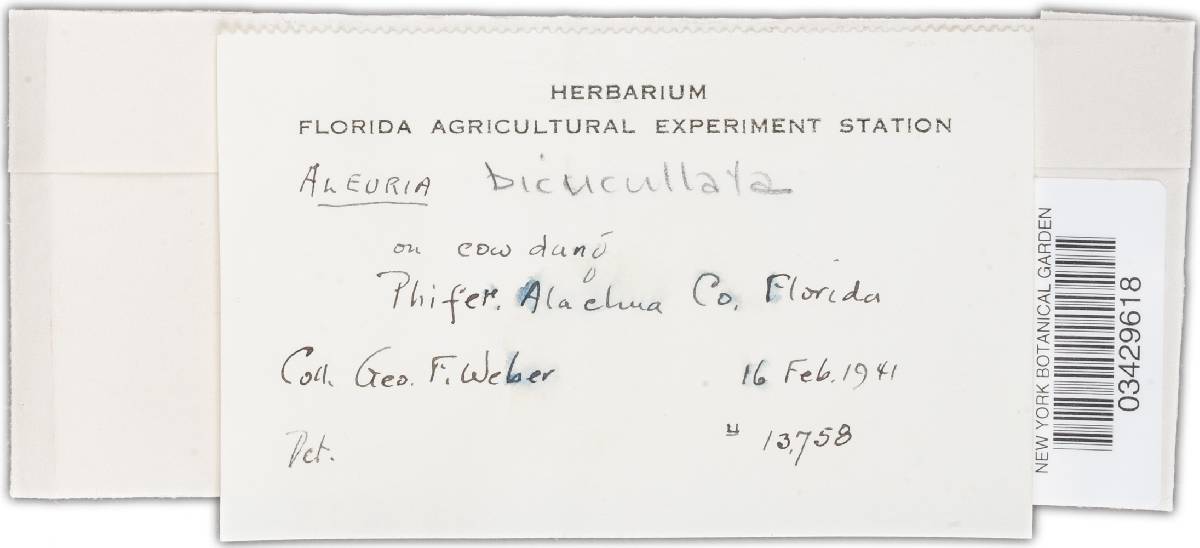 HERBARIUM
FLORIDA AGRICULTURAL EXPERIMENT STATION
ALEURIA bicucullata
on cow dung
Phifer. Alachua Co. Florida
Coll. Geo. F. Weber 16 Feb. 1941
Det. # 13,758
NEW YORK BOTANICAL GARDEN
03429618